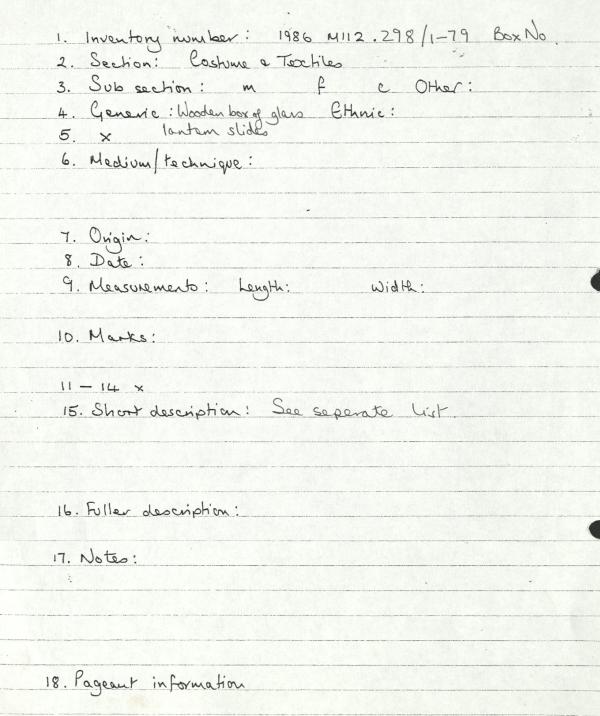 1. Inventory number: 1986 M112.298/1-79 Box No.
2. Section: Costume & Textiles
3. Sub section: m f c Other:
4. Generic: Wooden box of glass Ethnic:
5. x lantern slides
6. Medium/technique:
7. Origin:
8. Date:
9. Measurements: Length: Width:
10. Marks:
11 - 14 x
15. Short description: See seperate list.
16. Fuller description:
17. Notes:
18. Pageant information